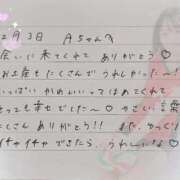 2月3日 Aちゃんへ
会いに来てくれて ありがとう♡
お土産もたくさんで うれしかった〜!
いっぱい かわいいって ほめてくれて
とっても幸せでした〜♡ やさしい言葉
たくさん ありがとう!! また、ゆっくり
イチャイチャできたら、うれしいな♡